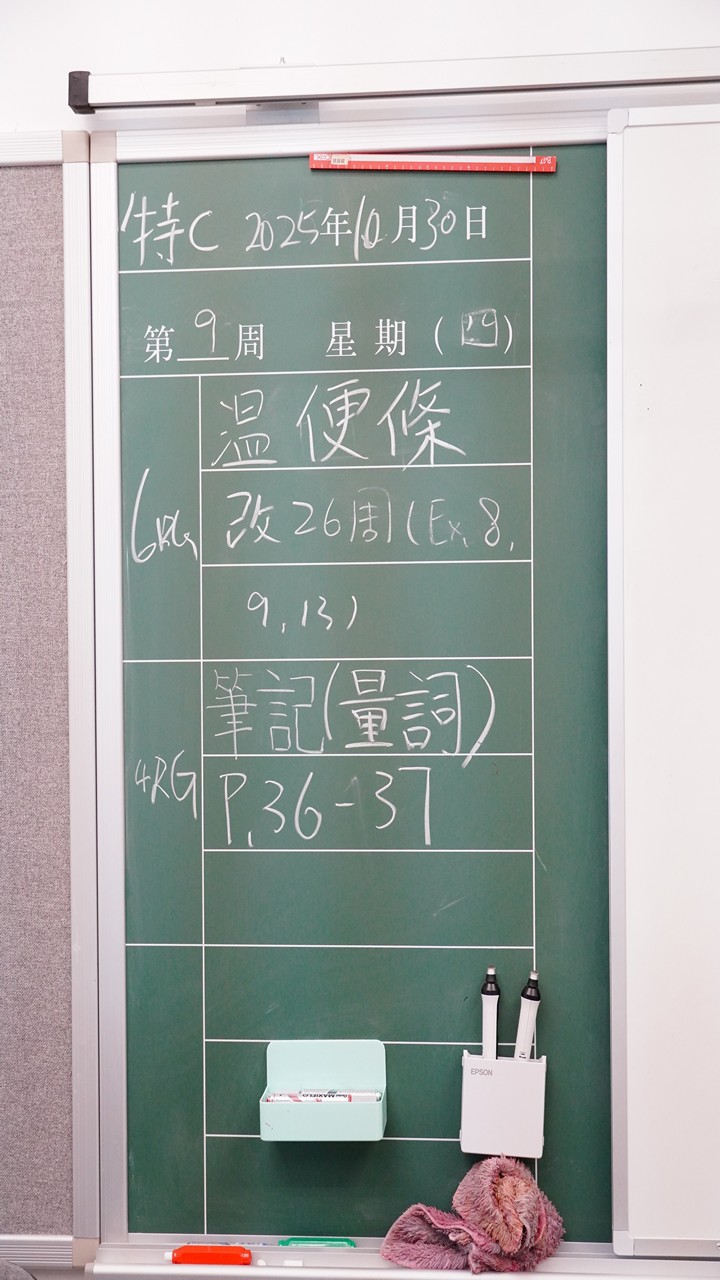 特C 2025年10月30日
第9周 星期(四)
温便條
6RG
改26周(Ex. 8,
9, 13)
筆記(量詞)
4RG
P.36-37
EPSON